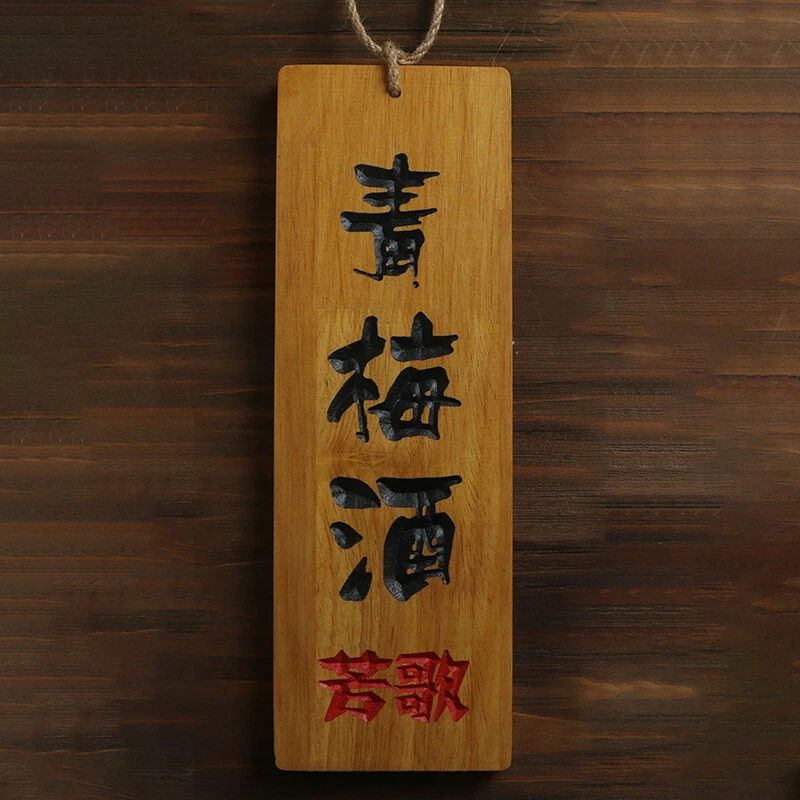 青梅酒
苦歌